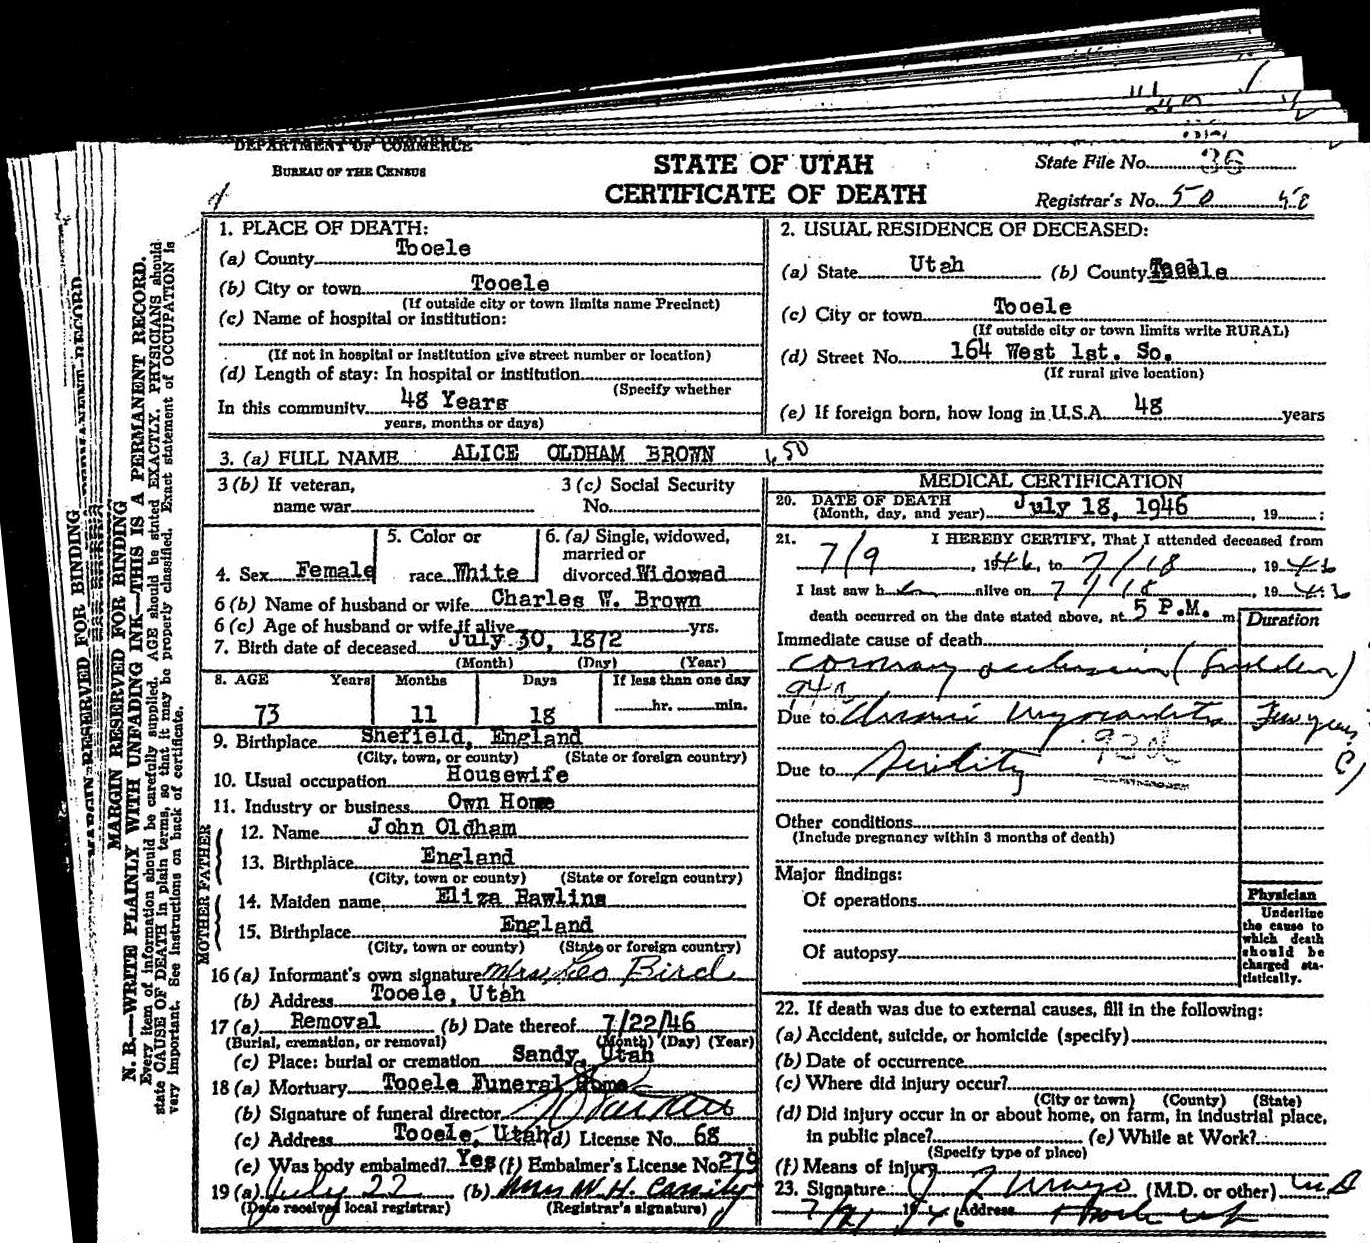 DEPARTMENT OF COMMERCE
BUREAU OF THE CENSUS
STATE OF UTAH
CERTIFICATE OF DEATH
State File No. 36
Registrar's No. 50 50
MARGIN RESERVED FOR BINDING
MARGIN RESERVED FOR BINDING
N. B.—WRITE PLAINLY WITH UNFADING INK—THIS IS A PERMANENT RECORD.
Every item of information should be carefully supplied. AGE should be stated EXACTLY. PHYSICIANS should
state CAUSE OF DEATH in plain terms, so that it may be properly classified. Exact statement of OCCUPATION is
very important. See instructions on back of certificate.
1. PLACE OF DEATH:
(a) County Tooele
(b) City or town Tooele
(If outside city or town limits name Precinct)
(c) Name of hospital or institution:
(If not in hospital or institution give street number or location)
(d) Length of stay: In hospital or institution
(Specify whether
In this community 48 Years
years, months or days)
2. USUAL RESIDENCE OF DECEASED:
(a) State Utah (b) County Tooele
(c) City or town Tooele
(If outside city or town limits write RURAL)
(d) Street No. 164 West 1st. So.
(If rural give location)
(e) If foreign born, how long in U.S.A. 48 years
3. (a) FULL NAME ALICE OLDHAM BROWN 650
3 (b) If veteran,
name war
3 (c) Social Security
No.
4. Sex Female
5. Color or
race White
6. (a) Single, widowed,
married or
divorced Widowed
6 (b) Name of husband or wife Charles W. Brown
6 (c) Age of husband or wife if alive yrs.
7. Birth date of deceased July 30, 1872
(Month) (Day) (Year)
8. AGE Years Months Days If less than one day
73 11 18 hr. min.
9. Birthplace Shefield, England
(City, town, or county) (State or foreign country)
10. Usual occupation Housewife
11. Industry or business Own Home
FATHER
12. Name John Oldham
13. Birthplace England
(City, town or county) (State or foreign country)
MOTHER
14. Maiden name Eliza Rawlins
15. Birthplace England
(City, town or county) (State or foreign country)
16 (a) Informant's own signature Mrs. Leo Bird
(b) Address Tooele, Utah
17 (a) Removal (b) Date thereof 7/22/46
(Burial, cremation, or removal) (Month) (Day) (Year)
(c) Place: burial or cremation Sandy, Utah
18 (a) Mortuary Tooele Funeral Home
(b) Signature of funeral director
(c) Address Tooele, Utah (d) License No. 68
(e) Was body embalmed? Yes (f) Embalmer's License No. 279
19 (a) July 22 (b) Mrs W. H. Cassity
(Date received local registrar) (Registrar's signature)
MEDICAL CERTIFICATION
20. DATE OF DEATH
(Month, day, and year) July 18, 1946, 19 :
21. I HEREBY CERTIFY, That I attended deceased from
7/9, 1946, to 7/18, 1946
I last saw h alive on 7/18, 1946
death occurred on the date stated above, at 5 P.M. m
Duration
Immediate cause of death
coronary occlusion (Sudden)
94a
Due to Chronic Myocarditis Few years
93d
Due to Senility
Other conditions
(Include pregnancy within 3 months of death)
Major findings:
Of operations
Of autopsy
Physician
Underline
the cause to
which death
should be
charged sta-
tistically.
22. If death was due to external causes, fill in the following:
(a) Accident, suicide, or homicide (specify)
(b) Date of occurrence
(c) Where did injury occur?
(City or town) (County) (State)
(d) Did injury occur in or about home, on farm, in industrial place,
in public place? (e) While at Work?
(Specify type of place)
(f) Means of injury
23. Signature (M.D. or other) M.D.
7/21 1946 Address